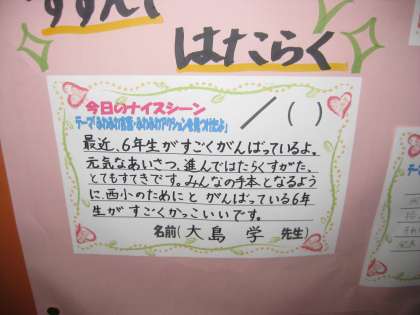 すすんで
はたらく
今日のナイスシーン
／（ ）
最近、6年生がすごくがんばっているよ。
元気なあいさつ、進んではたらくすがた、
とてもすてきです。みんなの手本となるよう
に、西小のためにと がんばっている6年
生が すごくかっこいいです。
名前（大島 学 先生）